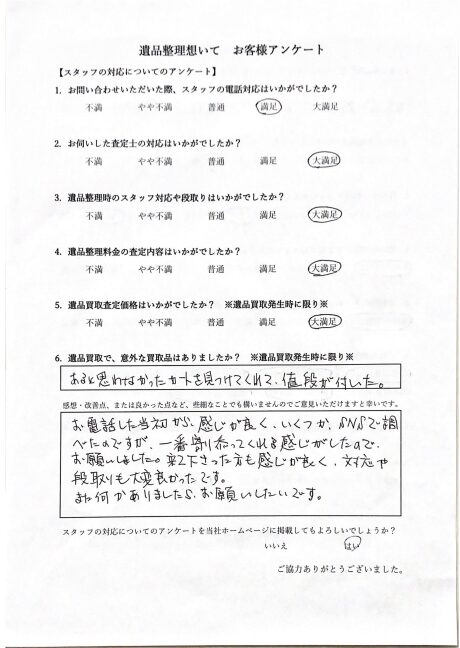 遺品整理想いて お客様アンケート
【スタッフの対応についてのアンケート】
1. お問い合わせいただいた際、スタッフの電話対応はいかがでしたか？
不満 やや不満 普通 満足 大満足
2. お伺いした査定士の対応はいかがでしたか？
不満 やや不満 普通 満足 大満足
3. 遺品整理時のスタッフ対応や段取りはいかがでしたか？
不満 やや不満 普通 満足 大満足
4. 遺品整理料金の査定内容はいかがでしたか？
不満 やや不満 普通 満足 大満足
5. 遺品買取査定価格はいかがでしたか？ ※遺品買取発生時に限り※
不満 やや不満 普通 満足 大満足
6. 遺品買取で、意外な買取品はありましたか？ ※遺品買取発生時に限り※
あると思わなかったカートを見つけてくれて、値段が付いた。
感想・改善点、または良かった点など、些細なことでも構いませんのでご意見いただけますと幸いです。
お電話した当初から、感じが良く、いくつか、SNSで調
べたのですが、一番寄り添ってくれる感じがしたので、
お願いしました。来て下さった方も感じが良く、対応や
段取りも大変良かったです。
また何かありましたら、お願いしたいです。
スタッフの対応についてのアンケートを当社ホームページに掲載してもよろしいでしょうか？
いいえ はい
ご協力ありがとうございました。